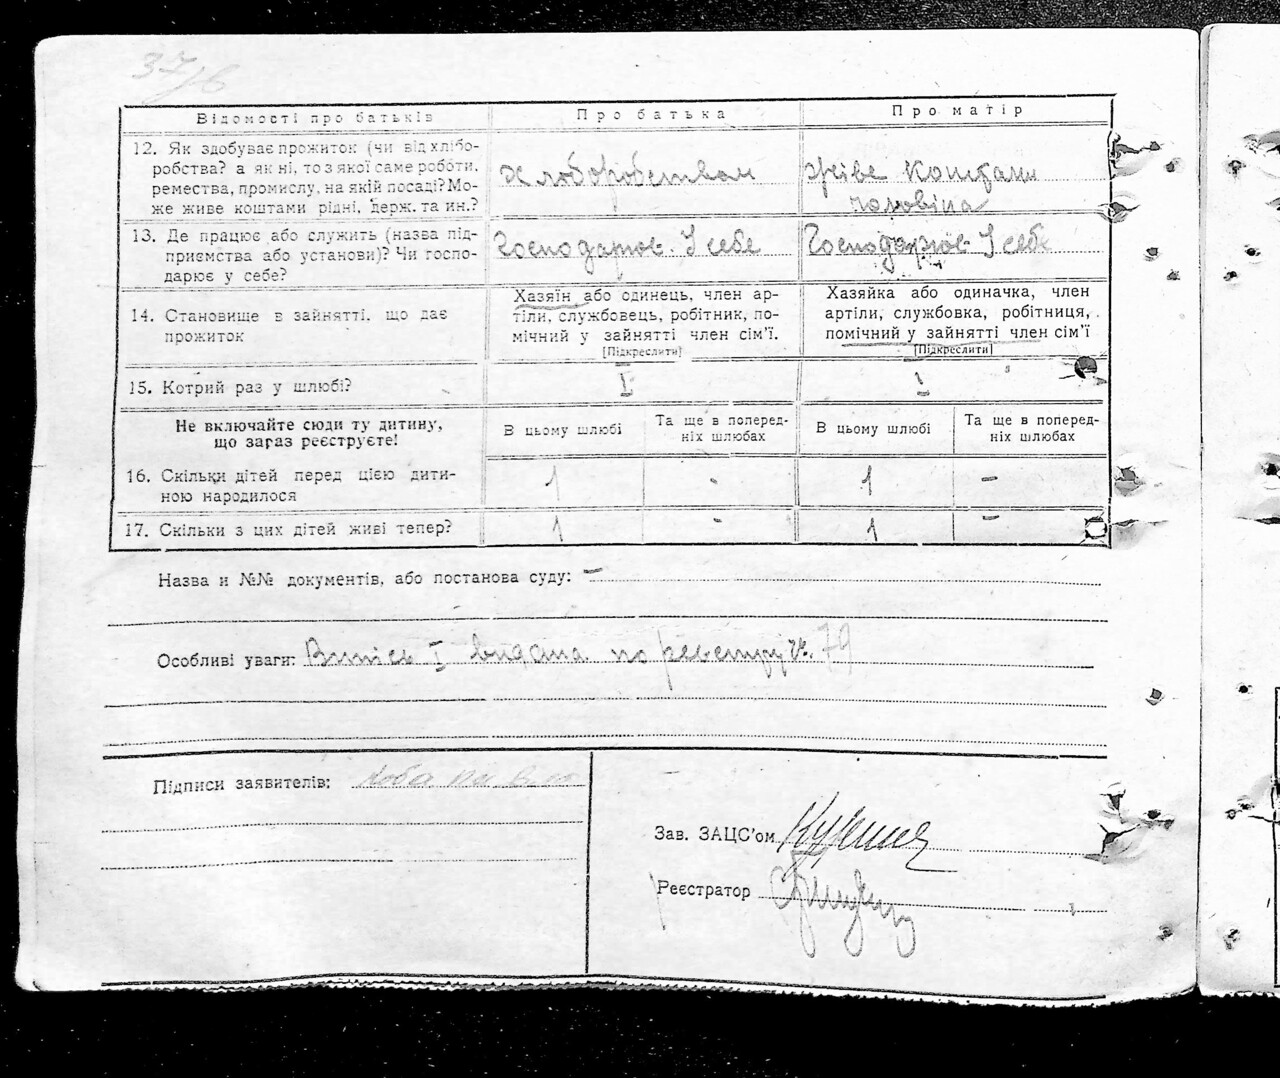 37/6
Відомості про батьків
Про батька
Про матір
12. Як здобуває прожиток (чи від хлібо-
робства? а як ні, то з якої саме роботи,
ремества, промислу, на якій посаді? Мо-
же живе коштами рідні, держ. та ин.?
Хлоборобством
живе Коштами
чоловіка
13. Де працює або служить (назва під-
приємства або установи)? Чи госпо-
дарює у себе?
Господарює У себе
Господарює У себе
14. Становище в зайнятті, що дає
прожиток
Хазяїн або одинець, член ар-
тіли, службовець, робітник, по-
мічний у зайнятті член сім'ї.
[Підкреслити]
Хазяйка або одиначка, член
артіли, службовка, робітниця,
помічний у зайнятті член сім'ї
[Підкреслити]
15. Котрий раз у шлюбі?
I
I
Не включайте сюди ту дитину,
що зараз реєструєте!
В цьому шлюбі
Та ще в поперед-
ніх шлюбах
В цьому шлюбі
Та ще в поперед-
ніх шлюбах
16. Скільки дітей перед цією дити-
ною народилося
1
-
1
-
17. Скільки з цих дітей живі тепер?
1
-
1
-
Назва и №№ документів, або постанова суду: -
Особливі уваги: Випись I видана по реєстру № 79
Підписи заявителів:
Зав. ЗАЦС'ом
Реєстратор